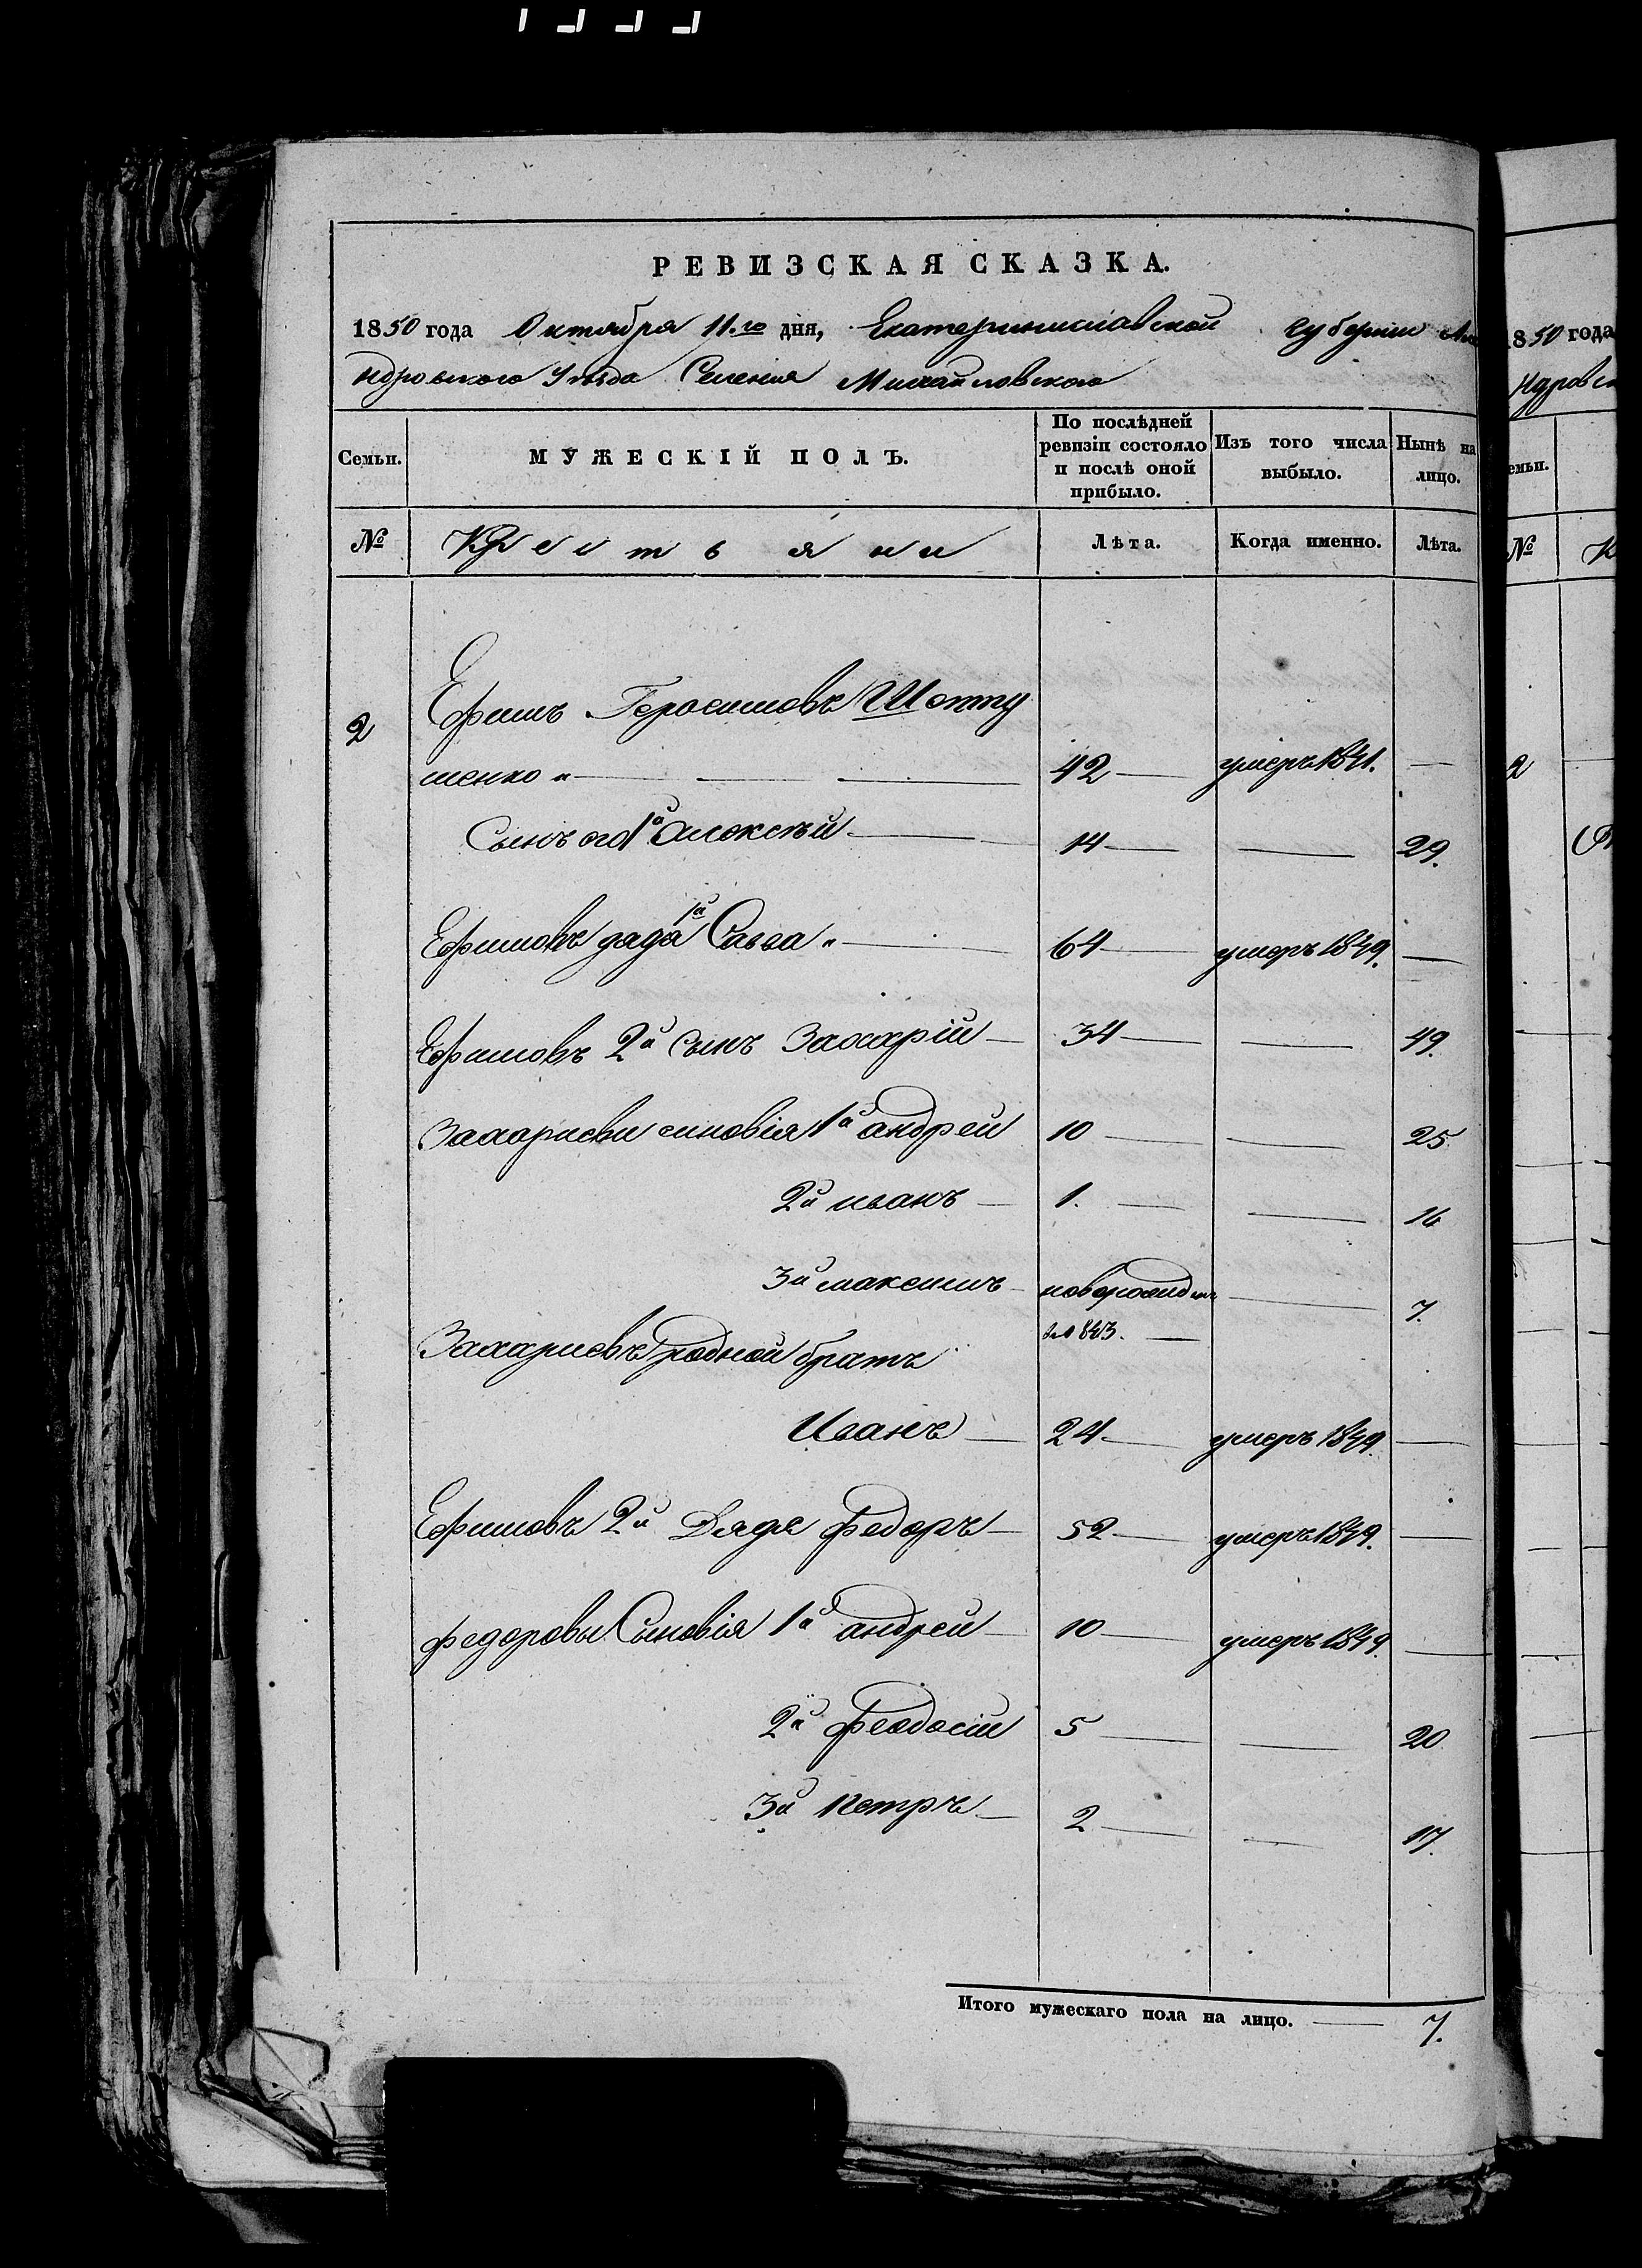 РЕВИЗСКАЯ СКАЗКА.
1850 года Октября 11.го дня, Екатеринославской губернии
ндровского Уѣзда Селения Михайловского
Семьи.
МУЖЕСКІЙ ПОЛЪ.
По послѣдней ревизіи состояло и послѣ оной прибыло.
Изъ того числа выбыло.
Нынѣ на лицо.
№ Крестьяни Лѣта. Когда именно. Лѣта.
2 Ефимъ Геросимовъ
шенко 42 умеръ 1841.
Сынъ его 1й Алексѣй 14 29.
Ефимовъ дядя 1й Савва 64 умеръ 1849.
Ефимовъ 2й сынъ Захарій 34 49.
Захариеви синовія 1й андрей 10 25
2й иванъ 1. 16
3й максимъ 7.
1843.
Захариевъ родной братъ
Иванъ 24 умеръ 1849.
Ефимовъ 2й Дядя Федоръ 52 умеръ 1849.
федоровы Сыновія 1й андрей 10 умеръ 1849.
2й Феодосій 5 20
3й Петръ 2 17.
Итого мужескаго пола на лицо. 7.
1850 года
ндровск
емьи.
№ К
2